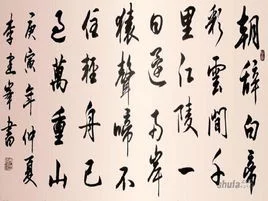 朝辭白帝
彩雲間千
里江陵一
日還兩岸
猿聲啼不
住輕舟已
過萬重山
庚寅年仲夏
李建峯書